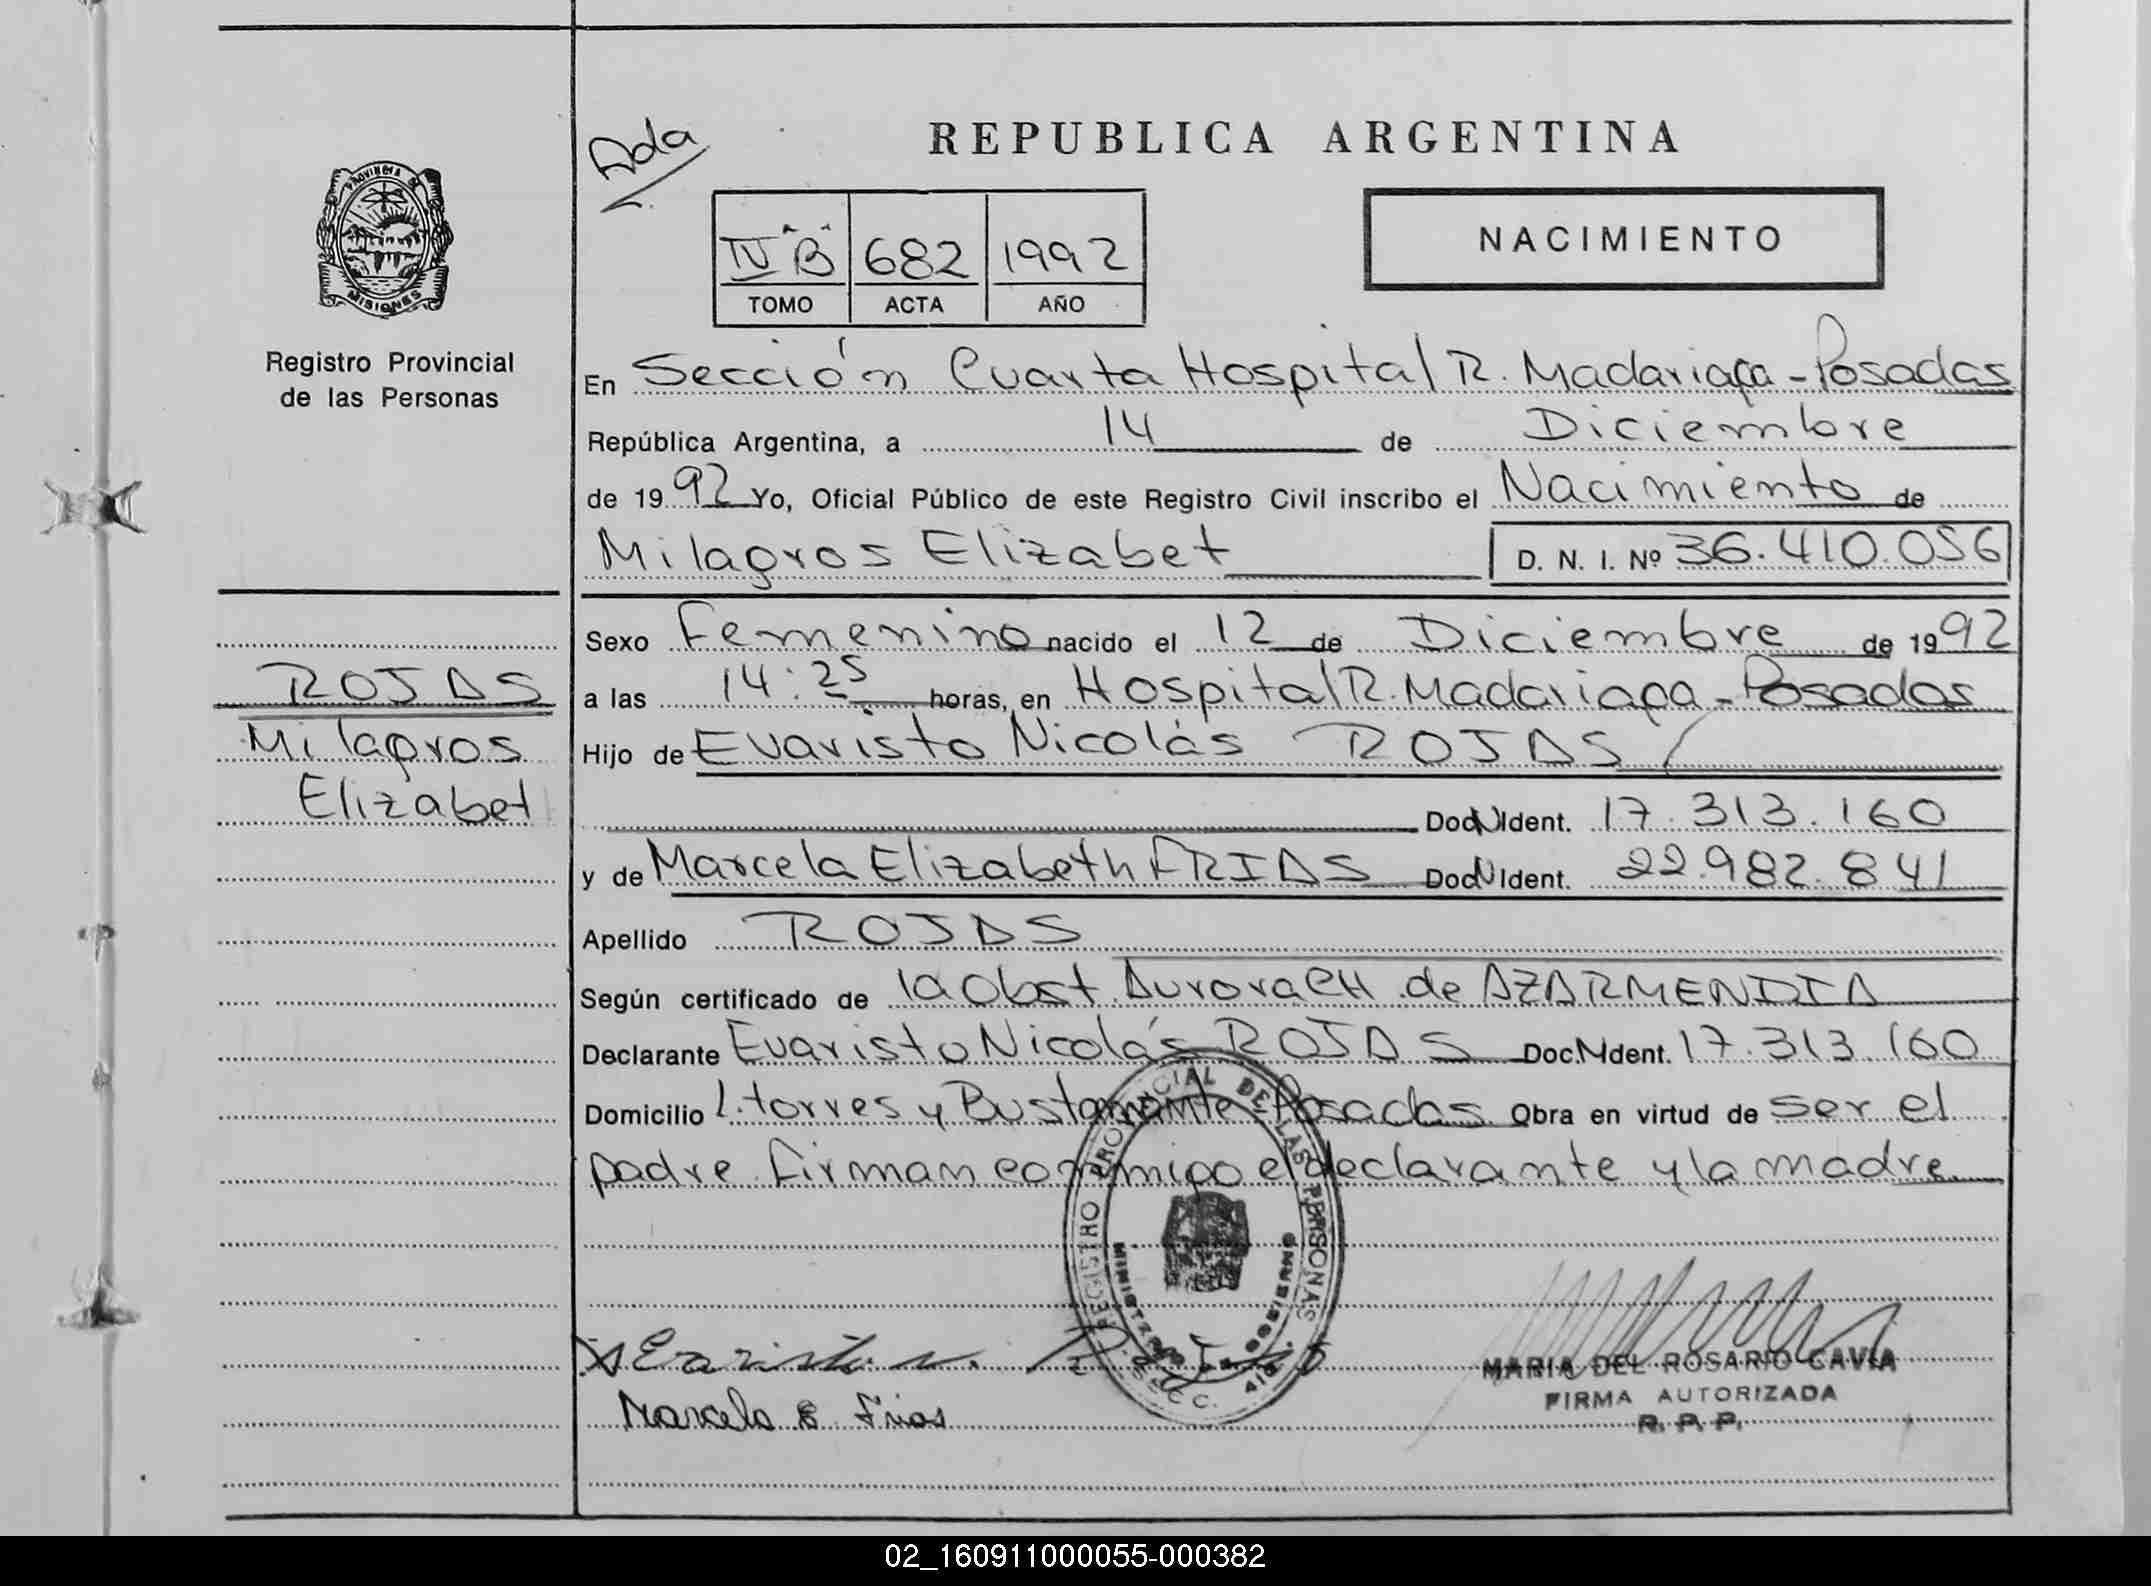 REPUBLICA ARGENTINA
Ada
PROVINCIA DE
MISIONES
Registro Provincial
de las Personas
IV "B" 682 1992
TOMO ACTA AÑO
NACIMIENTO
En Sección Cuarta Hospital R. Madariaga - Posadas
República Argentina, a 14 de Diciembre
de 1992 Yo, Oficial Público de este Registro Civil inscribo el Nacimiento de
Milagros Elizabet D. N. I. Nº 36.410.056
Sexo Femenino nacido el 12 de Diciembre de 1992
a las 14:25 horas, en Hospital R. Madariaga - Posadas
Hijo de Evaristo Nicolás ROJAS
Doc. N Ident. 17.313.160
y de Marcela Elizabeth FRIAS Doc. N Ident. 22.982.841
Apellido ROJAS
Según certificado de la Obst. Aurora CH. de AZARMENDIA
Declarante Evaristo Nicolás ROJAS Doc. N Ident. 17.313.160
Domicilio L. torres y Bustamante Posadas Obra en virtud de ser el
padre. Firman conmigo el declarante y la madre.
ROJAS
Milagros
Elizabet
REGISTRO PROVINCIAL DE LAS PERSONAS
MINISTERIO DE GOBIERNO
Marcela E Frias
MARIA DEL ROSARIO CAVIA
FIRMA AUTORIZADA
R. P. P.
02_160911000055-000382